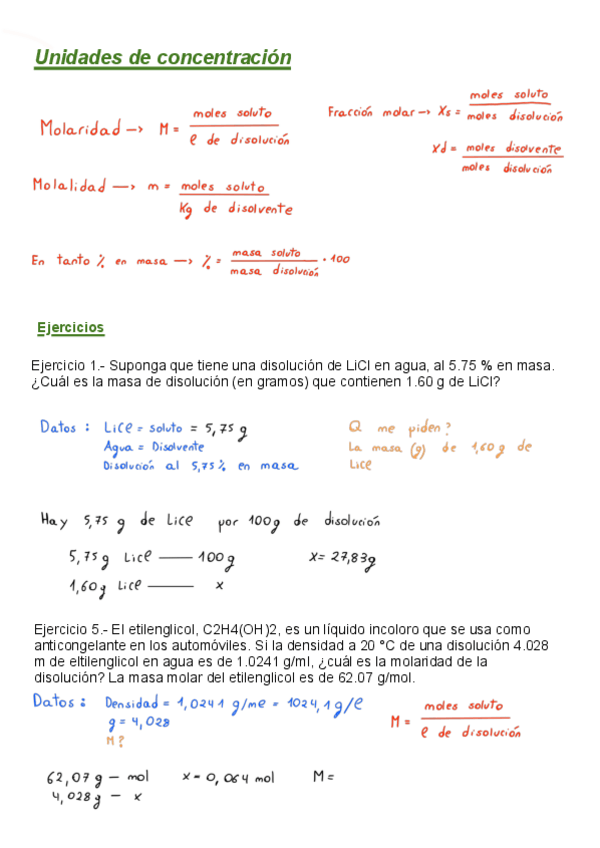 Unidades de concentración
Molaridad → M = moles soluto / l de disolución
Fracción molar → Xs = moles soluto / moles disolución
Xd = moles disolvente / moles disolución
Molalidad → m = moles soluto / Kg de disolvente
En tanto % en masa → % = masa soluto / masa disolución · 100
Ejercicios
Ejercicio 1.- Suponga que tiene una disolución de LiCl en agua, al 5.75 % en masa.
¿Cuál es la masa de disolución (en gramos) que contienen 1.60 g de LiCl?
Datos : LiCl = soluto = 5,75 g
Agua = Disolvente
Disolución al 5,75% en masa
Q me piden?
La masa (g) de 1,60 g de
LiCl
Hay 5,75 g de LiCl por 100g de disolución
5,75 g LiCl — 100 g
1,60g LiCl — x
x= 27,83g
Ejercicio 5.- El etilenglicol, C2H4(OH)2, es un líquido incoloro que se usa como
anticongelante en los automóviles. Si la densidad a 20 °C de una disolución 4.028
m de eltilenglicol en agua es de 1.0241 g/ml, ¿cuál es la molaridad de la
disolución? La masa molar del etilenglicol es de 62.07 g/mol.
Datos : Densidad = 1,0241 g/ml = 1024,1 g/l
g = 4,028
M?
M = moles soluto / l de disolución
62,07 g — mol
4,028g — x
x = 0,064 mol
M =